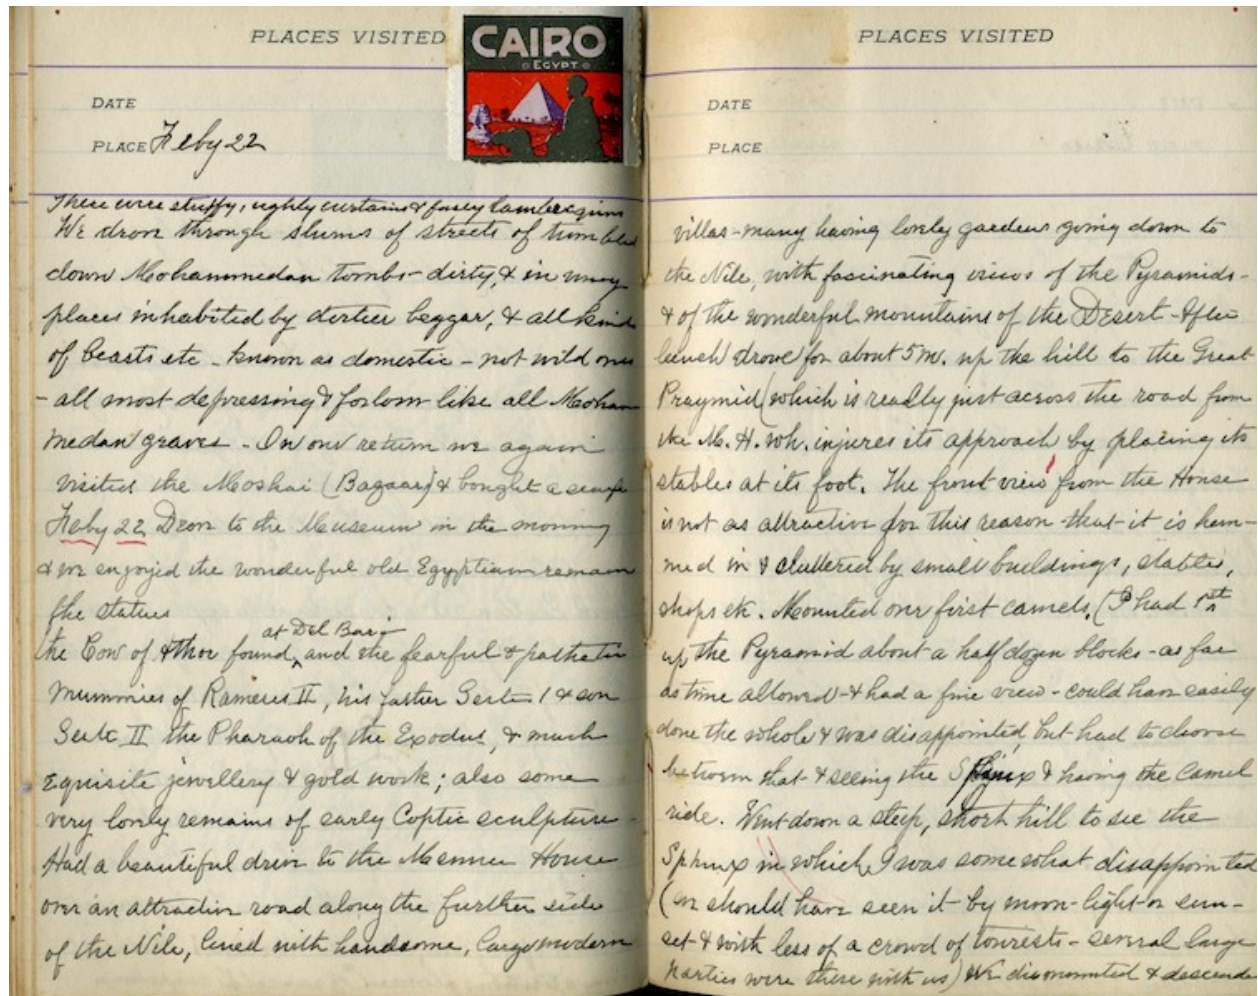 PLACES VISITED
CAIRO
EGYPT
DATE
PLACE Feby 22
There were stuffy, ughly curtains & fusty lambrequins
We drove through slums of streets of tumbled
down Mohammedan tombs - dirty, & in many
places inhabited by dirtier beggar, & all kinds
of beasts etc - known as domestic - not wild ones
- all most depressing & forlorn like all Moham
medan graves - On our return we again
visited the Moskai (Bazaar) & bought a scarf
Feby 22 Drove to the Museum in the morning
& we enjoyed the wonderful old Egyptian remain
the statues
at Del Bari
the Cow of Athor found, and the fearful & pathetic
mummies of Rameses II, his father Sete 1 & son
Sete II the Pharaoh of the Exodus, & much
Equisite jewellery & gold work; also some
very lovely remains of early Coptic sculpture -
Had a beautiful drive to the Menna House
over an attractive road along the further side
of the Nile, lined with handsome, large modern
PLACES VISITED
DATE
PLACE
villas - many having lovely gardens going down to
the Nile, with fascinating views of the Pyramids -
& of the wonderful mountains of the Desert - After
lunch drove for about 5 m. up the hill to the Great
Praymid (which is really just across the road from
the M. H. wh. injures its approach by placing its
stables at its foot. The front view from the House
is not as attractive for this reason - that it is hem-
med in & cluttered by small buildings, stables,
shops etc. Mounted our first camels, (I had 1st
up the Pyramid about a half dozen blocks - as far
as time allowed - & had a fine view - could have easily
done the whole & was disappointed, but had to choose
between that & seeing the Sphinx & having the camel
ride. Went down a steep, short hill to see the
Sphinx in which I was somewhat disappointed
(we should have seen it by moon-light or sun-
set & with less of a crowd of tourists - several large
parties were there with us) We dismounted & descende